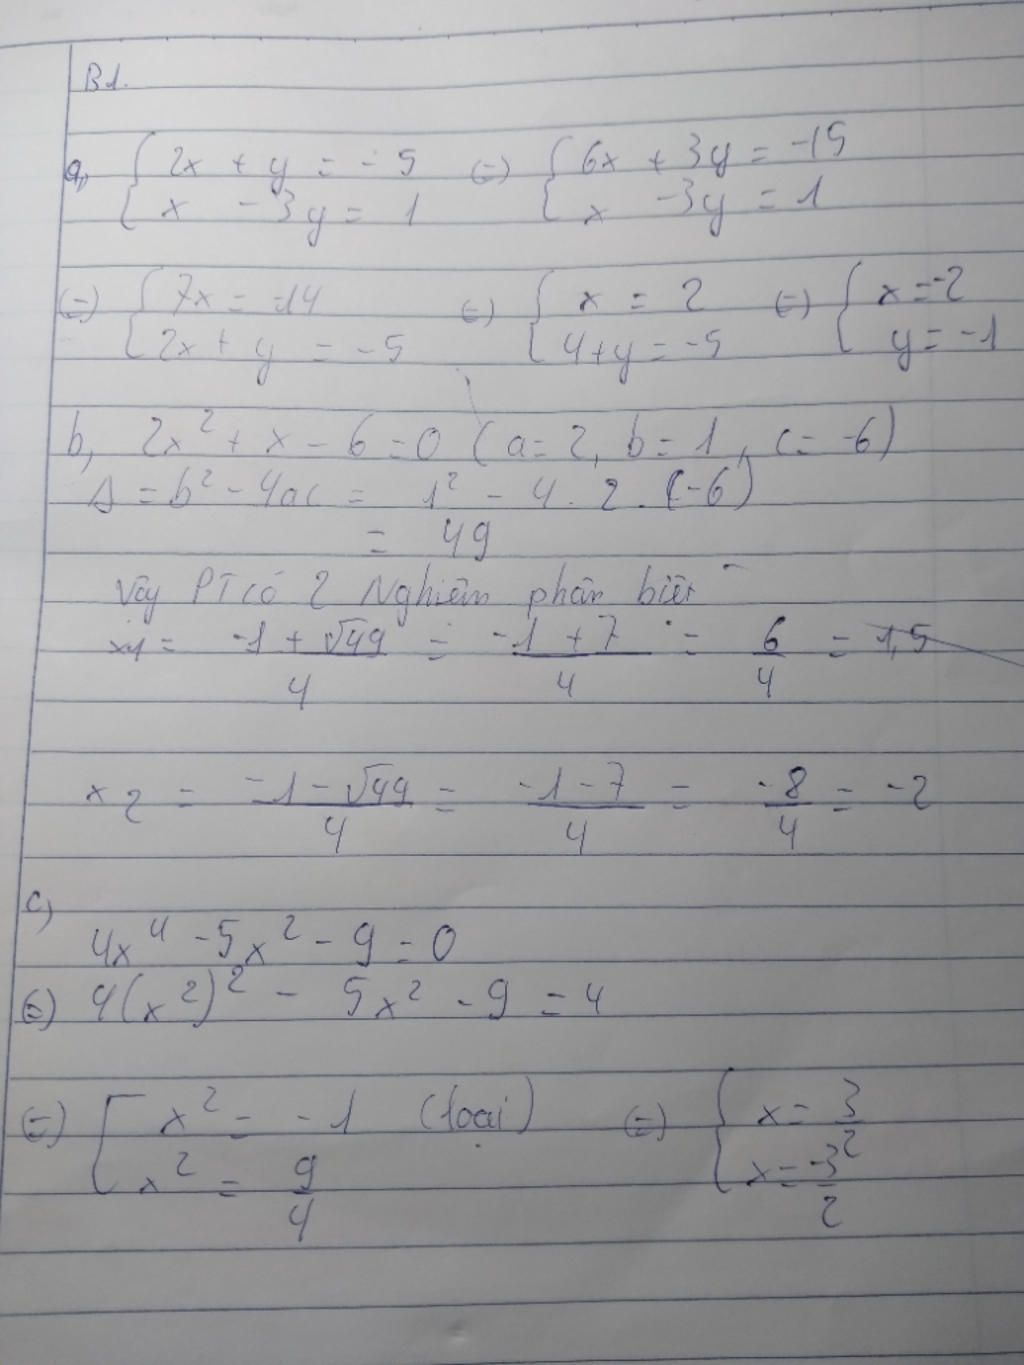 B1.
a, { 2x + y = -5 (=) { 6x + 3y = -15
{ x - 3y = 1 { x - 3y = 1
(=) { 7x = -14 (=) { x = 2 (=) { x = -2
{ 2x + y = -5 { 4 + y = -5 { y = -1
b, 2x² + x - 6 = 0 (a = 2, b = 1, c = -6)
Δ = b² - 4ac = 1² - 4 . 2 . (-6)
= 49
Vậy PT có 2 Nghiệm phân biệt
x1 = -1 + √49 / 4 = -1 + 7 / 4 = 6 / 4 = 1,5
x2 = -1 - √49 / 4 = -1 - 7 / 4 = -8 / 4 = -2
c,
4x⁴ - 5x² - 9 = 0
(=) 4(x²)² - 5x² - 9 = 4
(=) [ x² = -1 (loại) (=) { x = 3/2
[ x² = 9/4 { x = -3/2